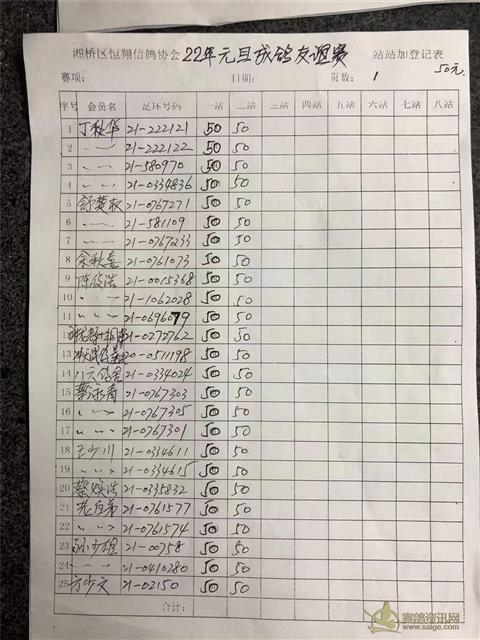 湘桥区恒翔信鸽协会 22年元旦成鸽友谊赛 站站加登记表
赛项： 日期： 页数： 1 50元.
序号 会员名 足环号码 一站 二站 三站 四站 五站 六站 七站 八站
1 丁秋华 21-222121 50 50
2 〃 21-222122 50 50
3 〃 21-580970 50 50
4 〃 21-0334836 50 50
5 21-0767271 50 50
6 〃 21-581109 50 50
7 〃 21-0767233 50 50
8 余秋喜 21-0761073 50 50
9 陈俊浩 21-0015368 50 50
10 〃 21-1062028 50 50
11 〃 21-0696079 50 50
12 21-0272762 50 50
13 20-0511198 50 50
14 八六鸽舍 21-0334024 50 50
15 21-0767303 50 50
16 〃 21-0767305 50 50
17 〃 21-0767301 50 50
18 王少川 21-0334611 50 50
19 〃 21-0334615 50 50
20 蔡焕浩 21-0335832 50 50
21 21-0761577 50 50
22 〃 21-0761574 50 50
23 21-00758 50 50
24 〃 21-0410280 50 50
25 方少文 21-02150 50 50
合计:
赛鸽资讯网
www.saige.com